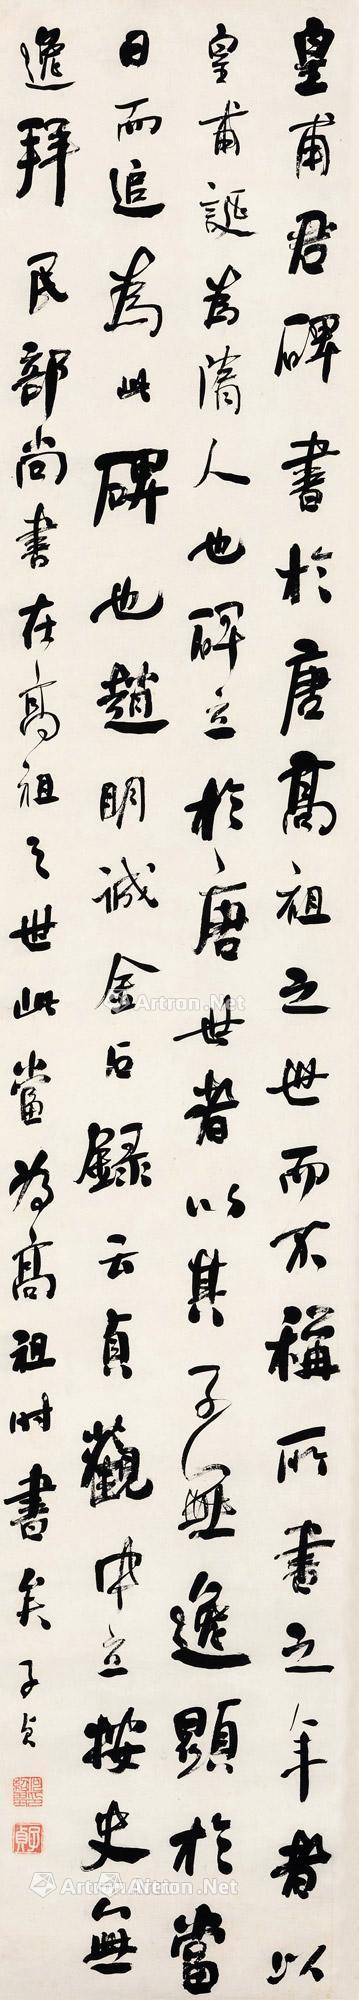 皇甫君碑書於唐高祖之世而不稱所書之年者以
皇甫誕為隋人也碑立於唐世者以其子無逸顯於當
日而追為此碑也趙明誠金石錄云貞觀中立按史無
逸拜民部尚書在高祖之世此當為高祖時書矣子貞
何紹基
子貞
Artron.Net
Artron.Net
Artron.Net
Artron.Net